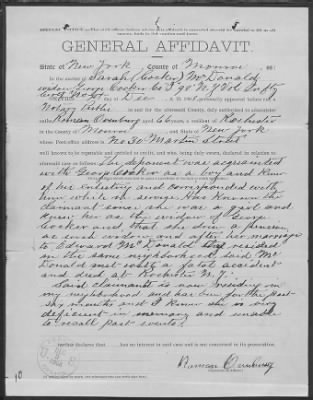 GENERAL AFFIDAVIT.
State of New York, County of Monroe, ss:
In the matter of Sarah (Cocker) McDonald
widow George Cocker Co 98 N.Y. Vol Infty
personally appeared before me a
Notary Public in and for the aforesaid County, duly authorized to administer oaths
Roman Ovenburg aged years, a resident of Rochester
in the County of Monroe and State of New York
whose Post-office address is No 30 Martin Street
well known to be reputable and entitled to credit, and who, being duly sworn, declared in relation to
aforesaid case as follows: The deponent was acquainted
with George Cocker as a boy and knew
of his enlisting and corresponded with
him while in service. Has known the
claimant since she was a girl and
knew her as the widow of George
Cocker and that she drew a pension
as such widow and after her marriage
to Edward McDonald she resided
in the same neighborhood. Said Mc
Donald met with a fatal accident
and died at Rochester N.Y.
Said claimant is now residing in
my neighborhood and has been for the past
six months and I know she is very
deficient in memory and unable
to recall past events.
further declares that has no interest in said case and is not concerned in its prosecution.
Roman Ovenburg